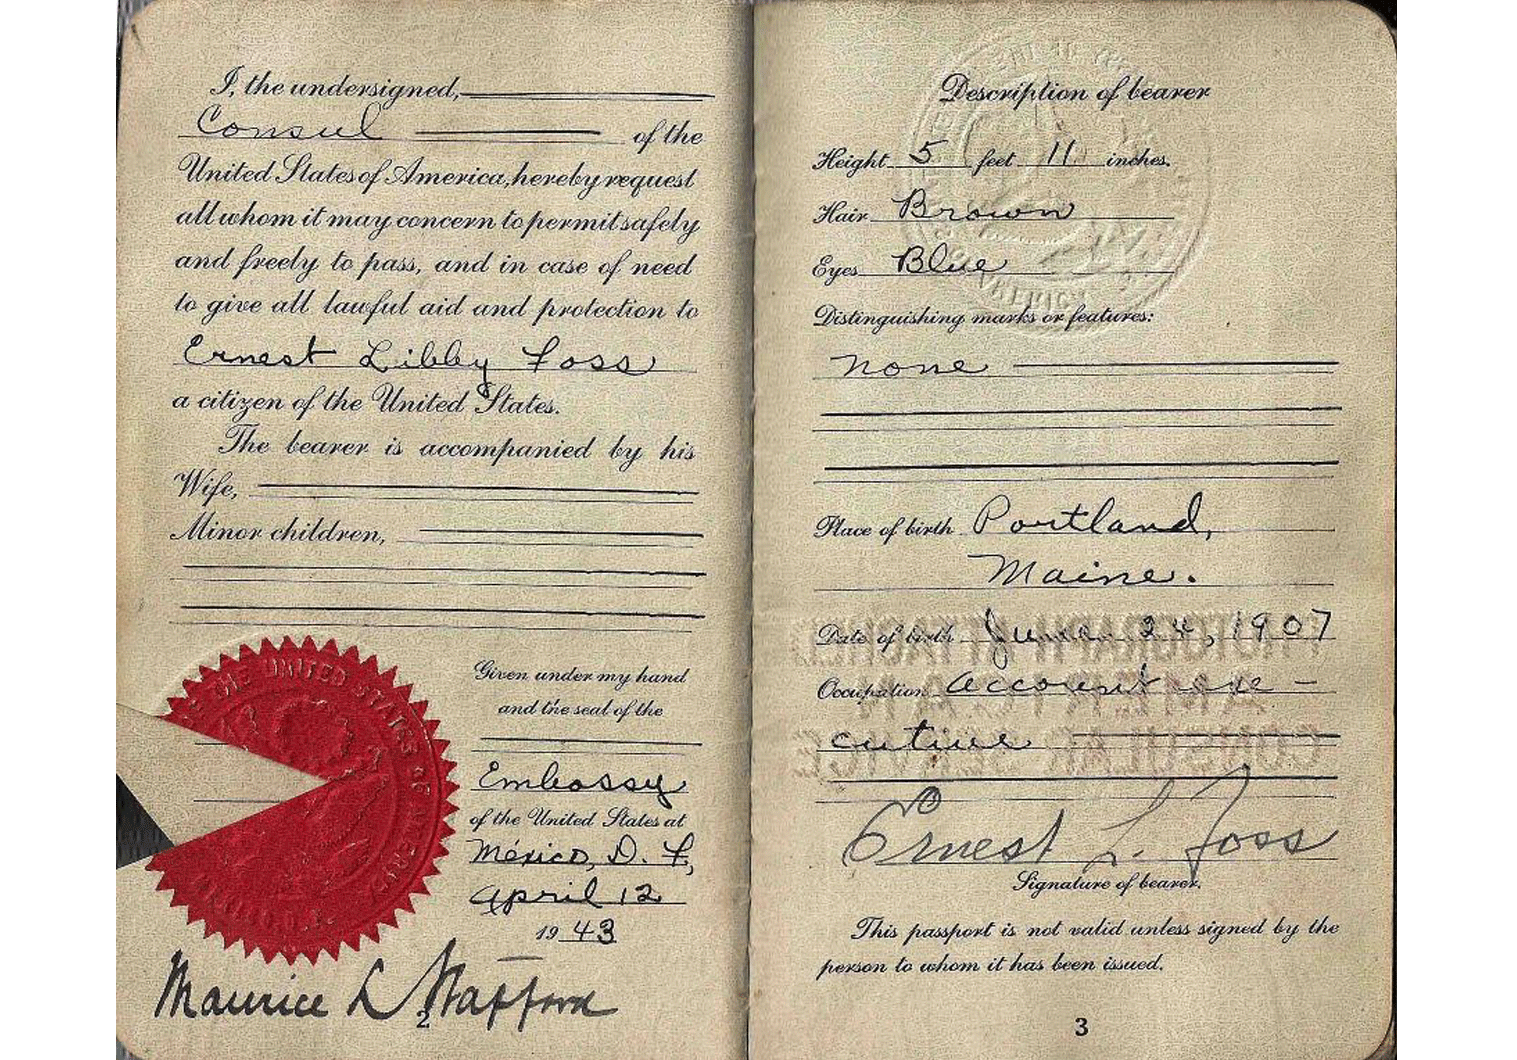 I, the undersigned,
Consul of the
United States of America, hereby request
all whom it may concern to permit safely
and freely to pass, and in case of need
to give all lawful aid and protection to
Ernest Libby Foss
a citizen of the United States.
The bearer is accompanied by his
Wife,
Minor children,
THE UNITED STATES OF AMERICA
Given under my hand
and the seal of the
Embassy
of the United States at
México, D. F.,
April 12
19 43
Maurice L Stafford
2
Description of bearer
Height 5 feet 11 inches.
Hair Brown
Eyes Blue
Distinguishing marks or features:
none
Place of birth Portland,
Maine.
Date of birth June 24, 1907
Occupation Account exe-
cutive
PHOTOGRAPH ATTACHED
AMERICAN
CONSULAR SERVICE
Ernest L. Foss
Signature of bearer.
This passport is not valid unless signed by the
person to whom it has been issued.
3